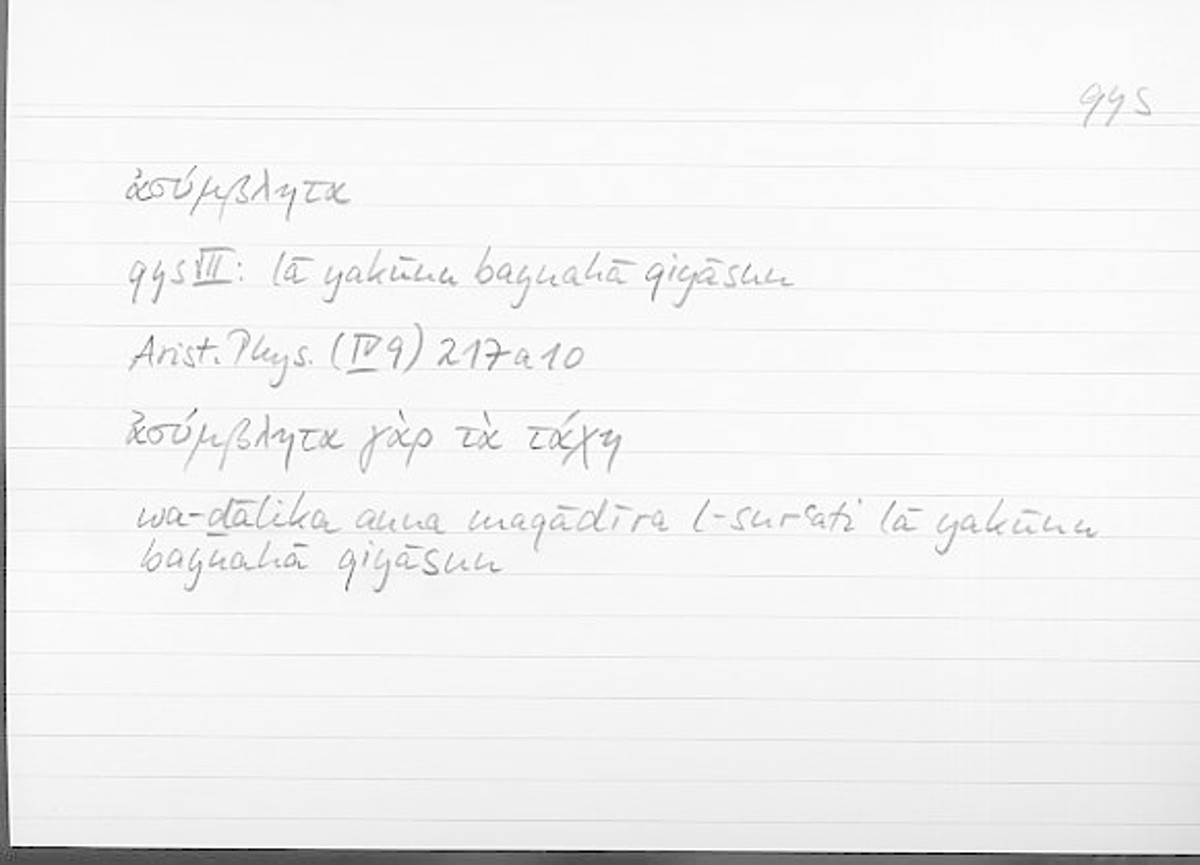 qys
ἀσύμβλητα
qys VIII: lā yakūnu baynahā qiyāsun
Arist. Phys. (IV 9) 217 a 10
ἀσύμβλητα γὰρ τὰ τάχη
wa-ḏālika anna maqādīra l-surʿati lā yakūnu
baynahā qiyāsun